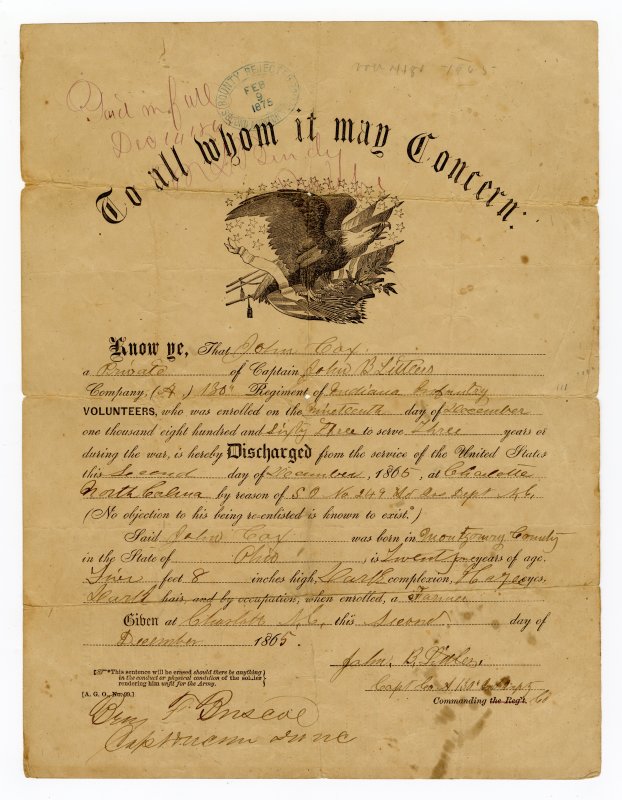 Paid in full
BOUNTY REJECTED
FEB
9
1875
1865
To all whom it may Concern:
Know ye, That John Cox
a Private of Captain John B Littlers
Company, (A,) 130th Regiment of Indiana Infantry
VOLUNTEERS, who was enrolled on the Nineteenth day of December
one thousand eight hundred and Sixty Three to serve Three years or
during the war, is hereby Discharged from the service of the United States
this Second day of December, 1865, at Charlotte
North Calina by reason of S.O. No. 249 Hd Qrs Dept N.C.
(No objection to his being re-enlisted is known to exist.*)
Said John Cox was born in Montgomry County
in the State of Ohio, is years of age.
Five feet 8 inches high, Dark complexion, Hazel eyes.
Dark hair, and by occupation, when enrolled, a Farmer
Given at Charlotte N.C. this Second day of
December 1865.
John B. Littler,
Capt Co A 130th
Commanding the Reg't. Co
[☞*This sentence will be erased should there be anything
in the conduct or physical condition of the soldier
rendering him unfit for the Army.]
[A. G. O., No. 99.]
Benj F Briscoe
Capt